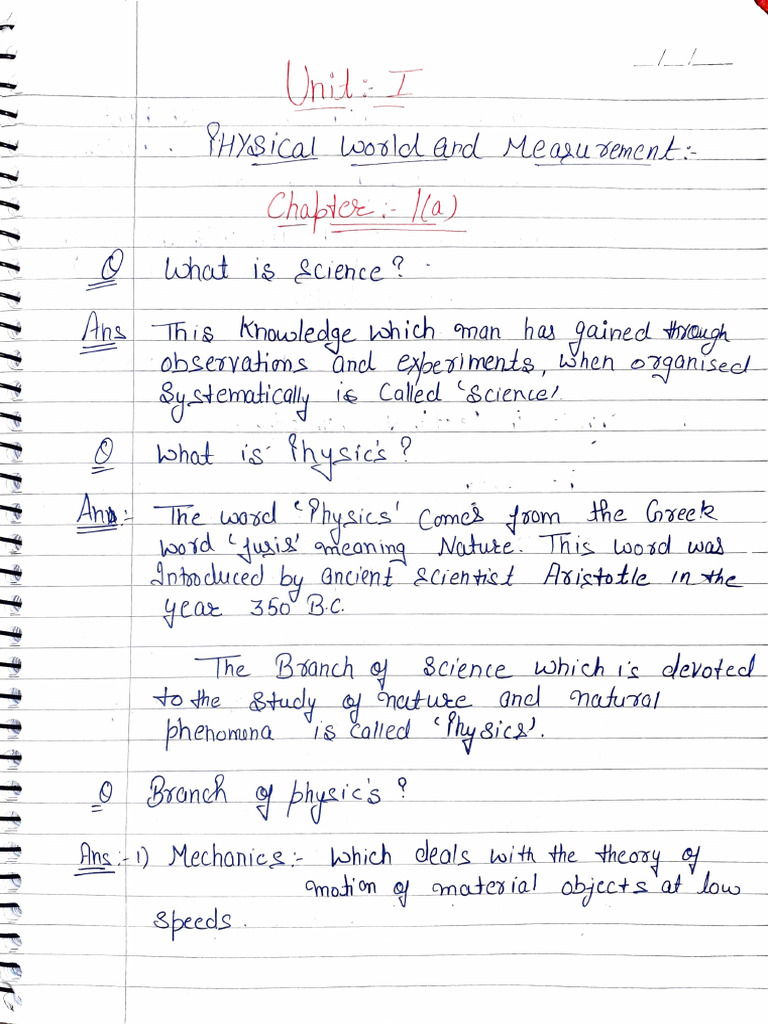 __/__/____
Unit:- I
PHYsical World and Measurement:-
Chapter:- 1(a)
Q What is Science?
Ans This Knowledge which man has gained through
observations and experiments, when organised
Systematically is Called 'Science'.
Q What is Physic's?
Ans:- The word 'Physics' Comes from the Greek
word 'fusis' meaning Nature. This word was
Introduced by ancient scientist Aristotle in the
year 350 B.C.
The Branch of Science which is devoted
to the study of nature and natural
phenomena is called 'Physics'.
Q Branch of physic's?
Ans:- 1) Mechanics:- Which deals with the theory of
motion of material objects at low
speeds.